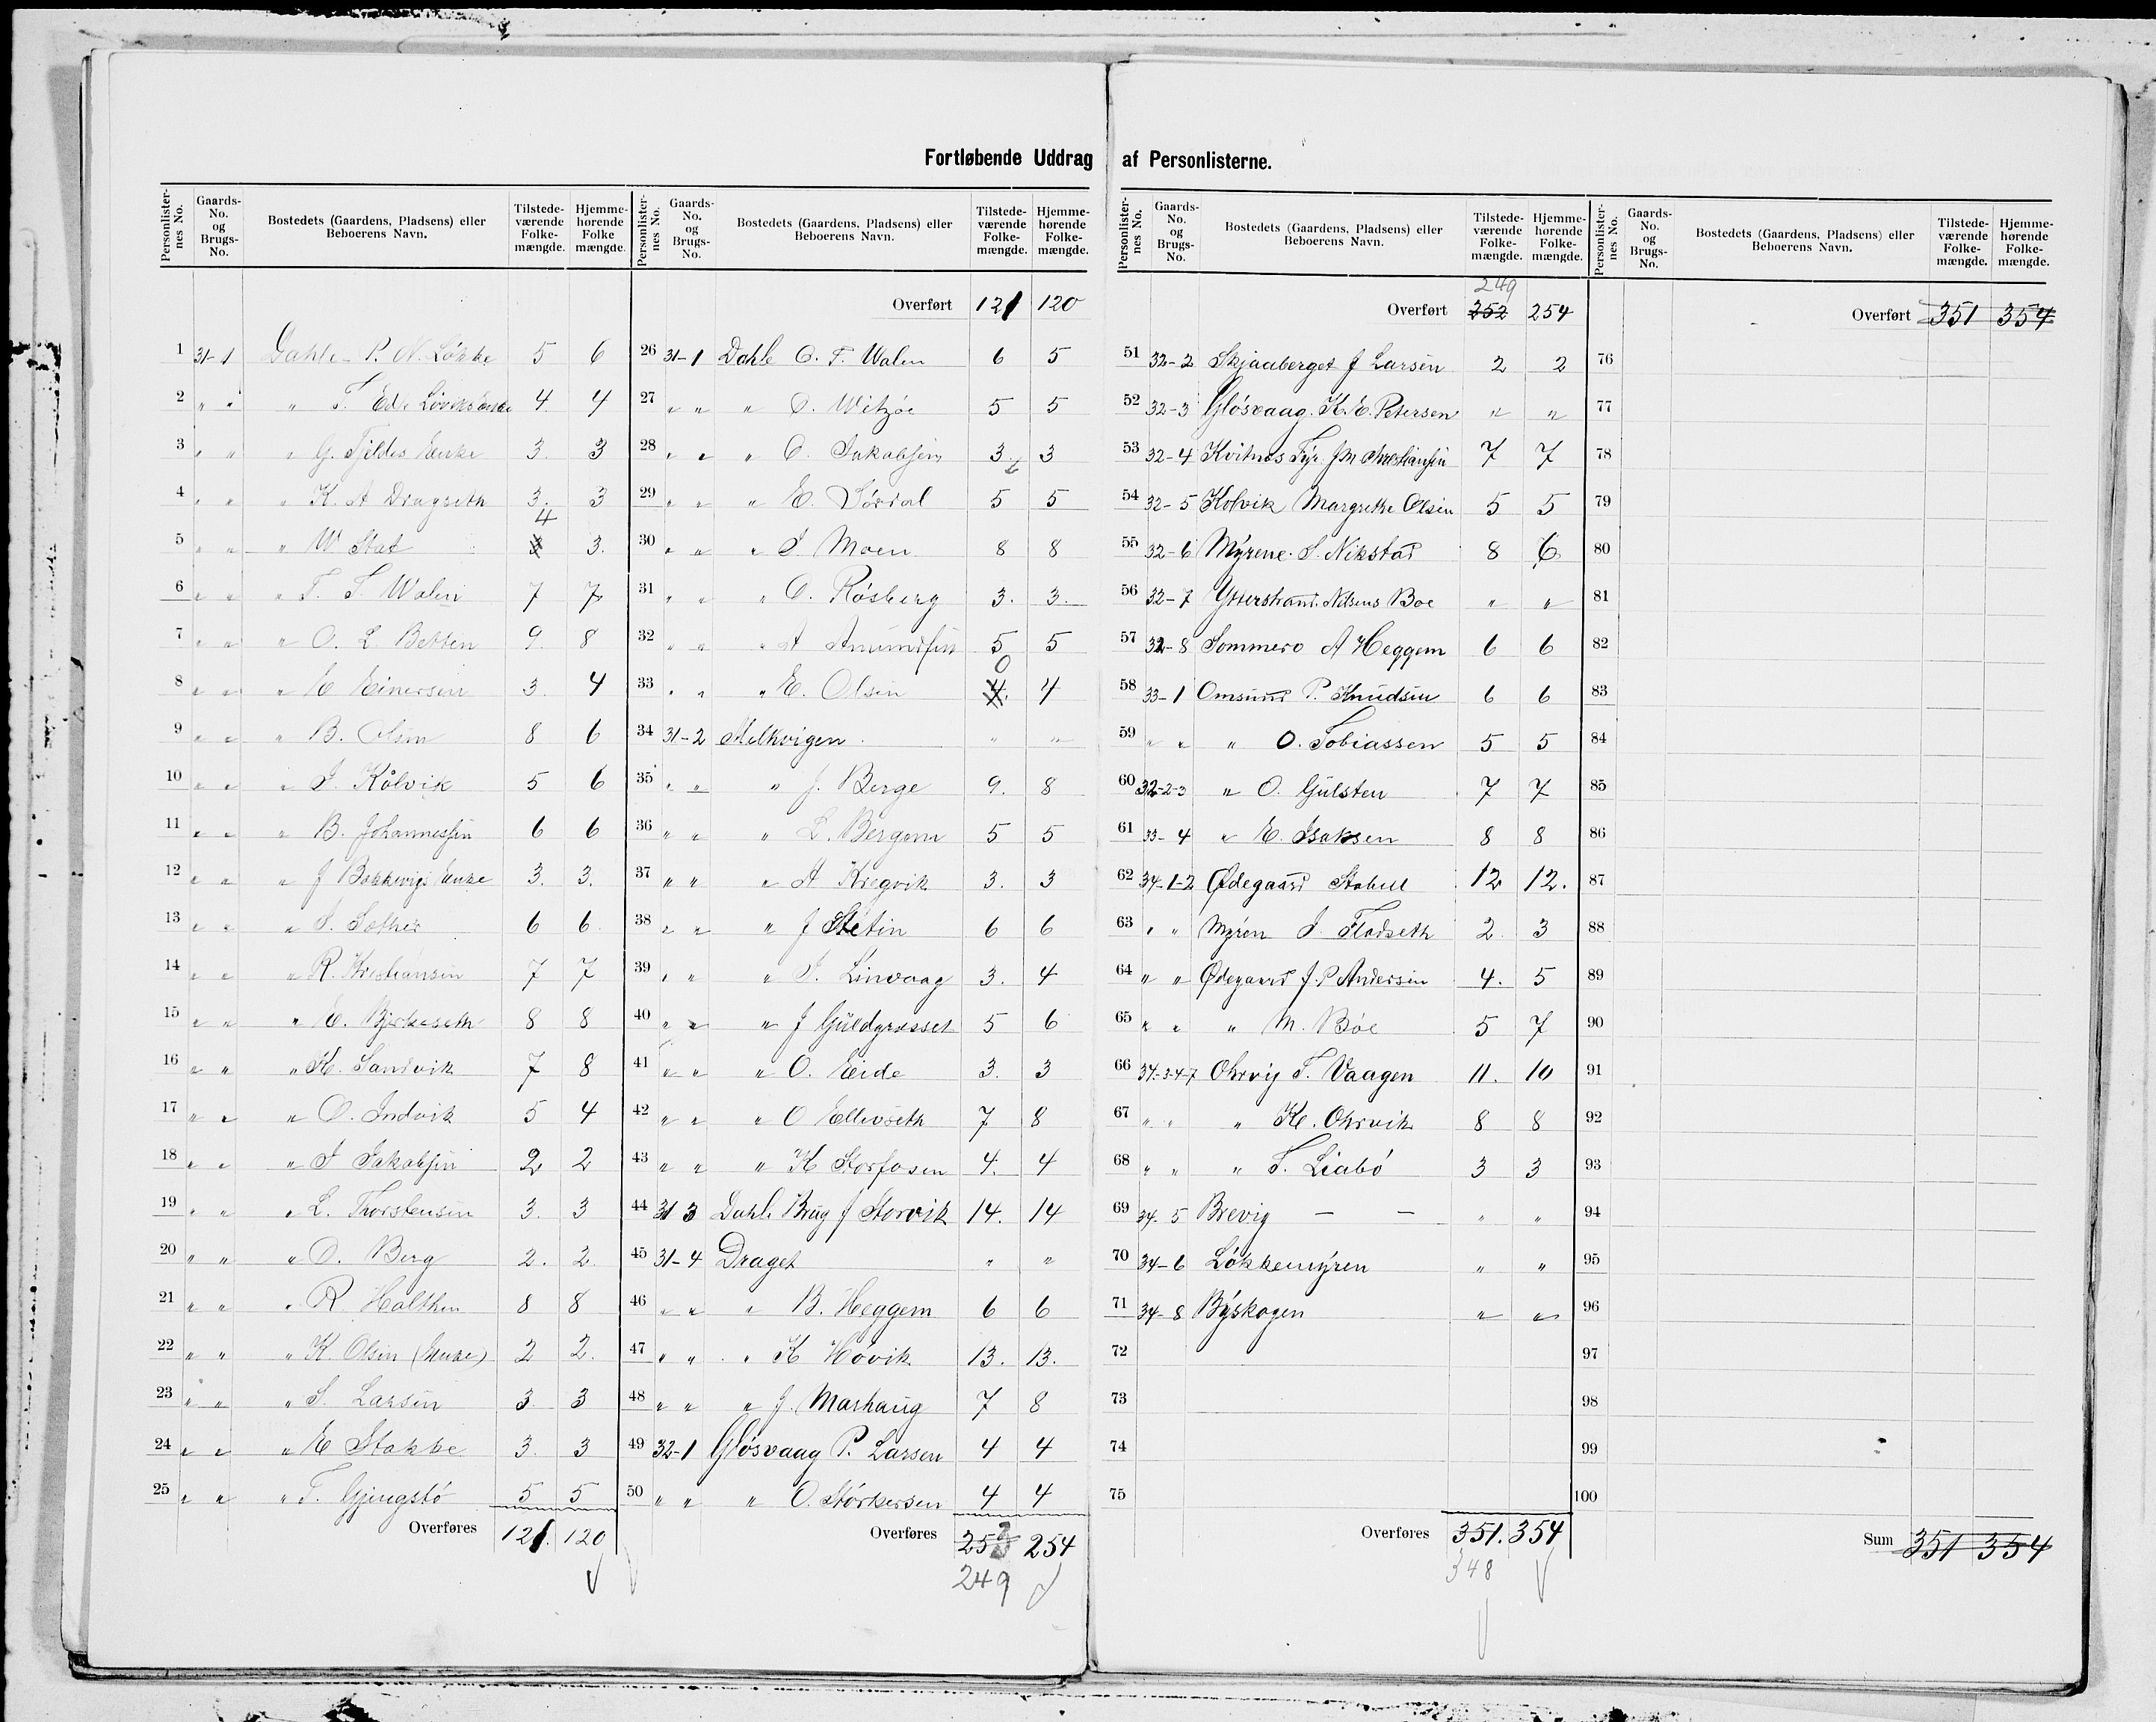 Fortløbende Uddrag af Personlisterne.
Personlister-nes No. | Gaards-No. og Brugs-No. | Bostedets (Gaardens, Pladsens) eller Beboerens Navn. | Tilstede-værende Folke-mængde. | Hjemme-hørende Folke mængde.
1 31-1 Dahle P. N. Løkke 5 6
2 " " " T. Eds Løvik 4 4
3 " " " G. Fjeldes Enke 3. 3
4 " " " K. A Dragseth 3. 3
5 " " " W Stat 4 3.
6 " " " T. S. Walen 7 7
7 " " " O. L. Betten 9. 8
8 " " " E Einersen 3. 4
9 " " " B. Olsen 8 6
10 " " " J. Kålvik 5 6
11 " " " B. Johannessen 6 6
12 " " " J Bakkevigs Enke 3. 3.
13 " " " S. Sæther 6 6
14 " " " R. Kristiansen 7 7
15 " " " E. Birkeseth 8 8
16 " " " K. Sandvik 7 8
17 " " " O. Indvik 5 4
18 " " " J Jakobsen 2 2
19 " " " L. Thorstensen 3. 3
20 " " " O. Berg 2. 2
21 " " " R. Holthen 8 8
22 " " " K. Olsen (Enke) 2 2.
23 " " " S. Larsen 3. 3
24 " " " E Stokke 3. 3
25 " " " T. Gjengstø 5 5
Overføres 121. 120
Personlister-nes No. | Gaards-No. og Brugs-No. | Bostedets (Gaardens, Pladsens) eller Beboerens Navn. | Tilstede-værende Folke-mængde. | Hjemme-hørende Folke-mængde.
Overført 121 120
26 31-1 Dahle O. T. Walen 6 5
27 " " " O. Witzøe 5 5
28 " " " O. Jakobsen 3. 3
29 " " " E. Sørdal 5 5
30 " " " J. Moen 8 8
31 " " " O. Røsberg 3. 3.
32 " " " A Amundsen 5 5
33 " " " E. Olsen 4. 0 4
34 31-2 Melkvigen " "
35 " " " J. Berge 9. 8
36 " " " L. Bergem 5 5
37 " " " A Kregvik 3. 3
38 " " " J Stetin 6 6
39 " " " J. Linvaag 3. 4
40 " " " J Guldgræsset 5 6
41 " " " O. Eide 3. 3
42 " " " O Ellevseth 7 8
43 " " " K Storfosen 4. 4
44 31 3 Dahle Brug J Storvik 14. 14
45 31-4 Draget " "
46 " " " B. Heggem 6 6
47 " " " K Høvik 13. 13.
48 " " " J. Marhaug 7 8
49 32-1 Gløsvaag P. Larsen 4 4
50 " " " O. Størkersen 4 4
Overføres 253 254
249
Personlister-nes No. | Gaards-No. og Brugs-No. | Bostedets (Gaardens, Pladsens) eller Beboerens Navn. | Tilstede-værende Folke-mængde. | Hjemme-hørende Folke-mængde.
249
Overført 252 254
51 32-2 Skjaaberget J Larsen 2 2
52 32-3 Gløsvaag. K. E. Petersen " "
53 32-4 Kvitnes Fyr. J M Christiansen 7 7
54 32-5 Kolvik Margrethe Olsen 5 5
55 32-6 Myrene. S. Nikstad 8 6
56 32-7 Ytterstrand. Nilsens Boe " "
57 32-8 Sommero A Heggem 6 6
58 33-1 Omsund P. Knudsen 6 6
59 " " " O. Tobiassen 5 5
60 32-2-3 " O. Gulsten 7 7
61 33-4 " E. Isaksen 8 8
62 34-1-2 Ødegaard Stabell 12 12.
63 " " Myren J. Fladseth 2. 3
64 " " Ødegaard J. P Andersen 4. 5
65 " " " M. Bøe 5 7
66 34-3-4-7 Ohrvig T. Vaagen 11. 10
67 " " " K. Ohrvik 8 8
68 " " " T. Liabø 3 3
69 34-5 Brevig – – " "
70 34-6 Løkkemyren " "
71 34-8 Byskogen " "
72
73
74
75
Overføres 351. 354
348
Personlister-nes No. | Gaards-No. og Brugs-No. | Bostedets (Gaardens, Pladsens) eller Beboerens Navn. | Tilstede-værende Folke-mængde. | Hjemme-hørende Folke-mængde.
Overført 351 354
76
77
78
79
80
81
82
83
84
85
86
87
88
89
90
91
92
93
94
95
96
97
98
99
100
Sum 351 354